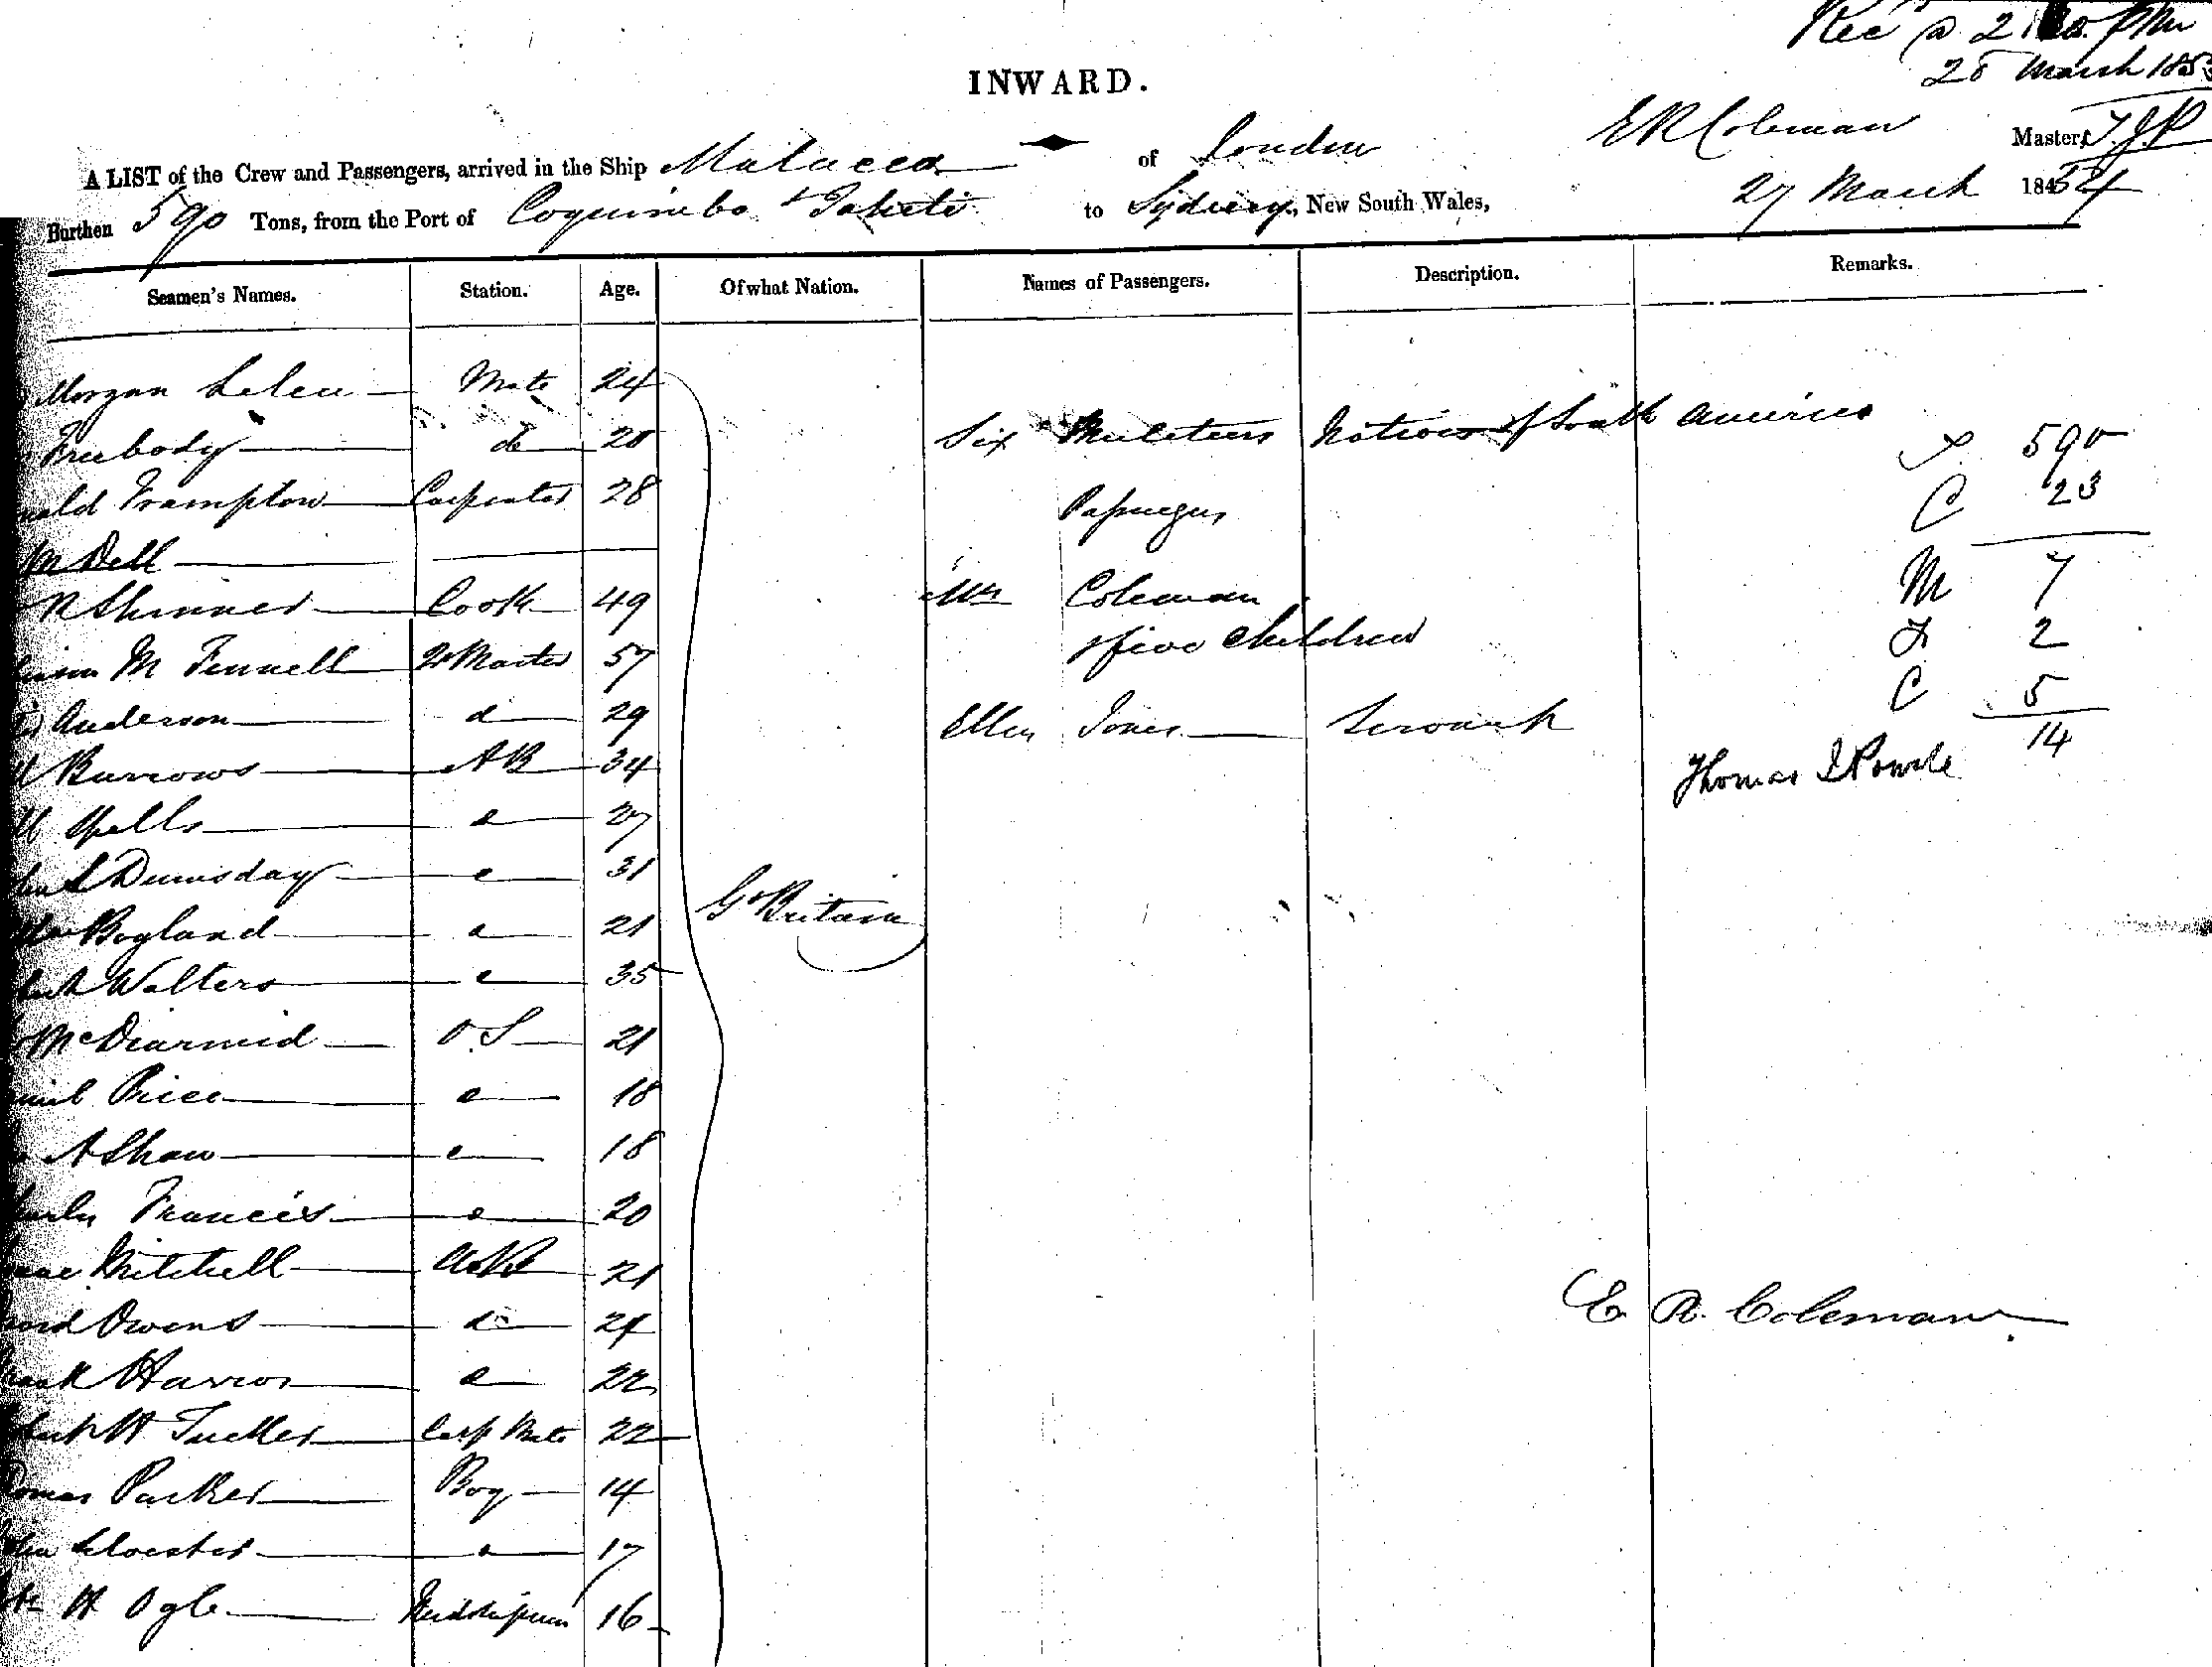 Rec @ 2 PM
28 March 185
INWARD.
A LIST of the Crew and Passengers, arrived in the Ship Malacca of London E R Coleman Master, T.J.P
Burthen 590 Tons, from the Port of Coquimbo & Tahiti to Sydney, New South Wales, 27 March 1854
Seamen's Names. Station. Age. Of what Nation. Names of Passengers. Description. Remarks.
Morgan Mate 24
Freebody do 28 Six Muleteers Natives of South America
T 590
Frampton Carpenter 28 Passengers C 23
M Dell
R Skinner Cook 49 Mrs Coleman M 7
M Fennell Qr Master 57 & five children F 2
Anderson d 29 Ellen Jones Servant C 5
14
Burrows AB 34 Thomas
Spells d 27
Dumsday d 31
Bogland d 21 Gt Britain
Walters d 35
McDiarmid O.S 21
Price d 18
A Shaw d 18
Francis d 20
Mitchell 21
Owens do 21
d 22
H Tucker Carp Mate 22
Parker Boy 14
d 17
H Ogle Midshipman 16
E. R. Coleman